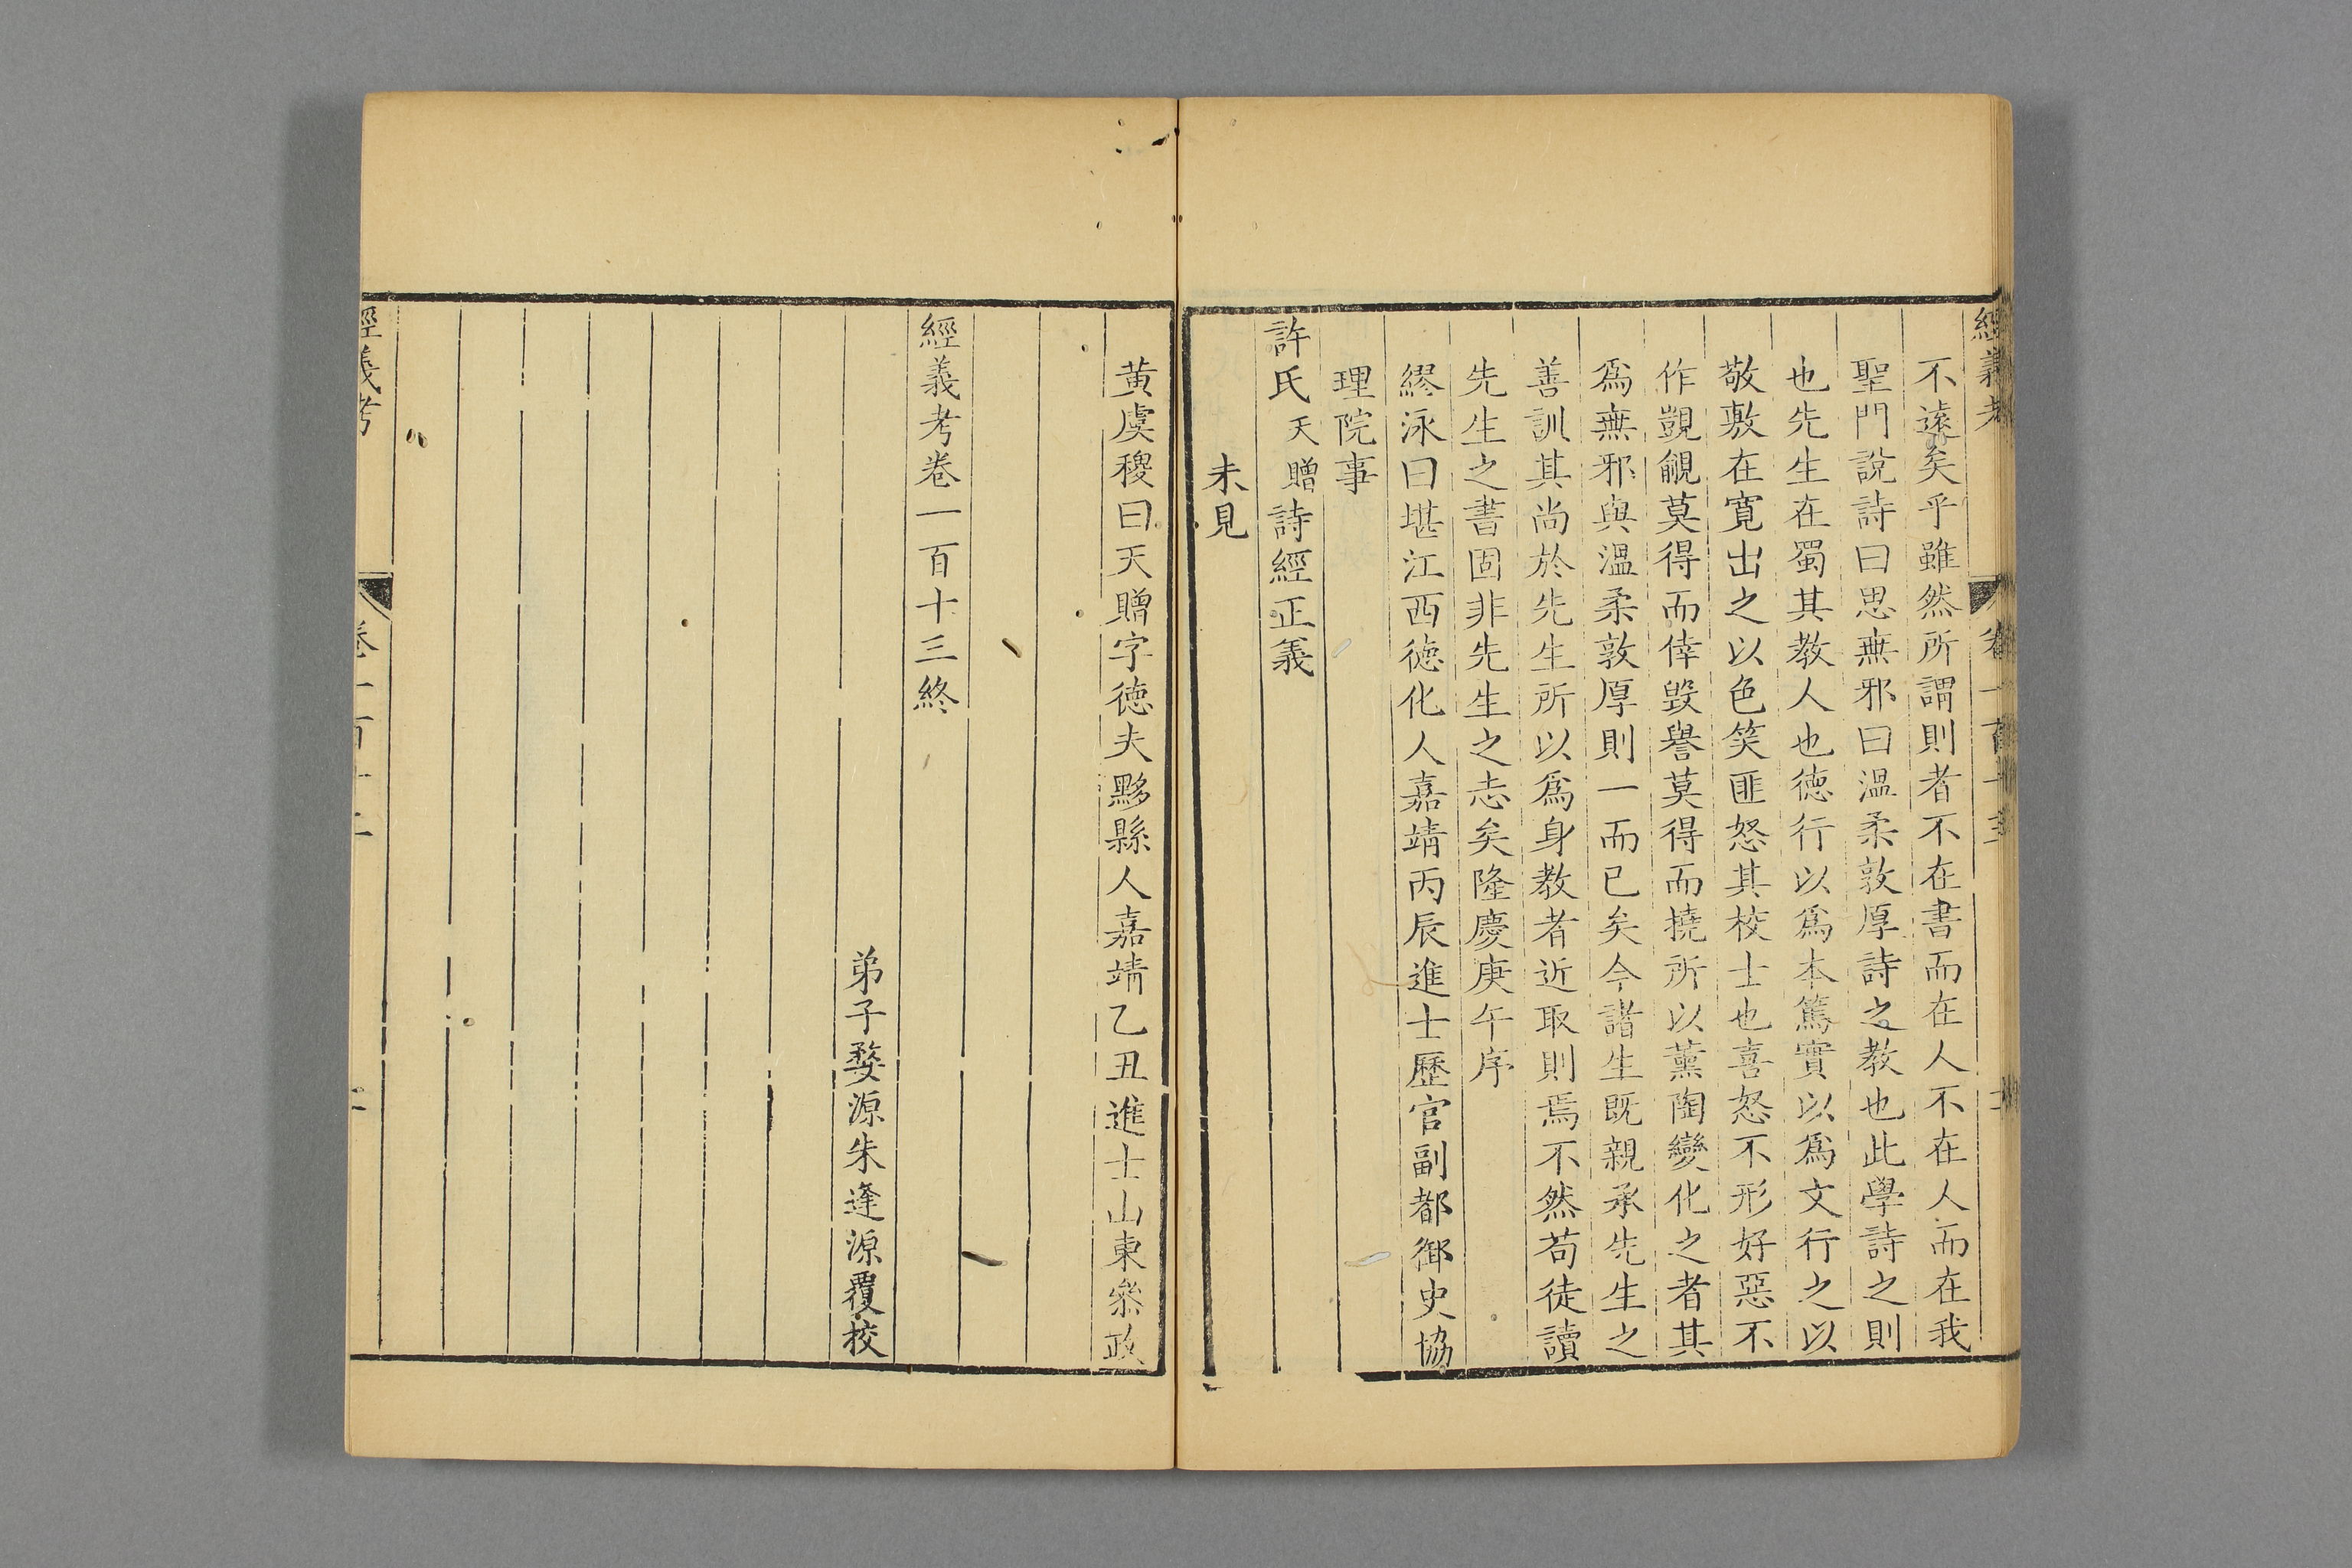 經義考 卷一百十三
不遠矣乎雖然所謂則者不在書而在人不在人而在我
聖門說詩曰思無邪曰溫柔敦厚詩之教也此學詩之則
也先生在蜀其教人也德行以爲本篤實以爲文行之以
敬敷在寬出之以色笑匪怒其校士也喜怒不形好惡不
作覬覦莫得而倖毀譽莫得而撓所以薰陶變化之者其
爲無邪與溫柔敦厚則一而已矣今諸生既親承先生之
善訓其尚於先生所以爲身教者近取則焉不然苟徒讀
先生之書固非先生之志矣隆慶庚午序
繆泳曰堪江西德化人嘉靖丙辰進士歷官副都御史協
理院事
許氏天贈詩經正義
未見
黃虞稷曰天贈字德夫黟縣人嘉靖乙丑進士山東參政
經義考卷一百十三終
弟子婺源朱逢源覆校
經義考 卷一百十三